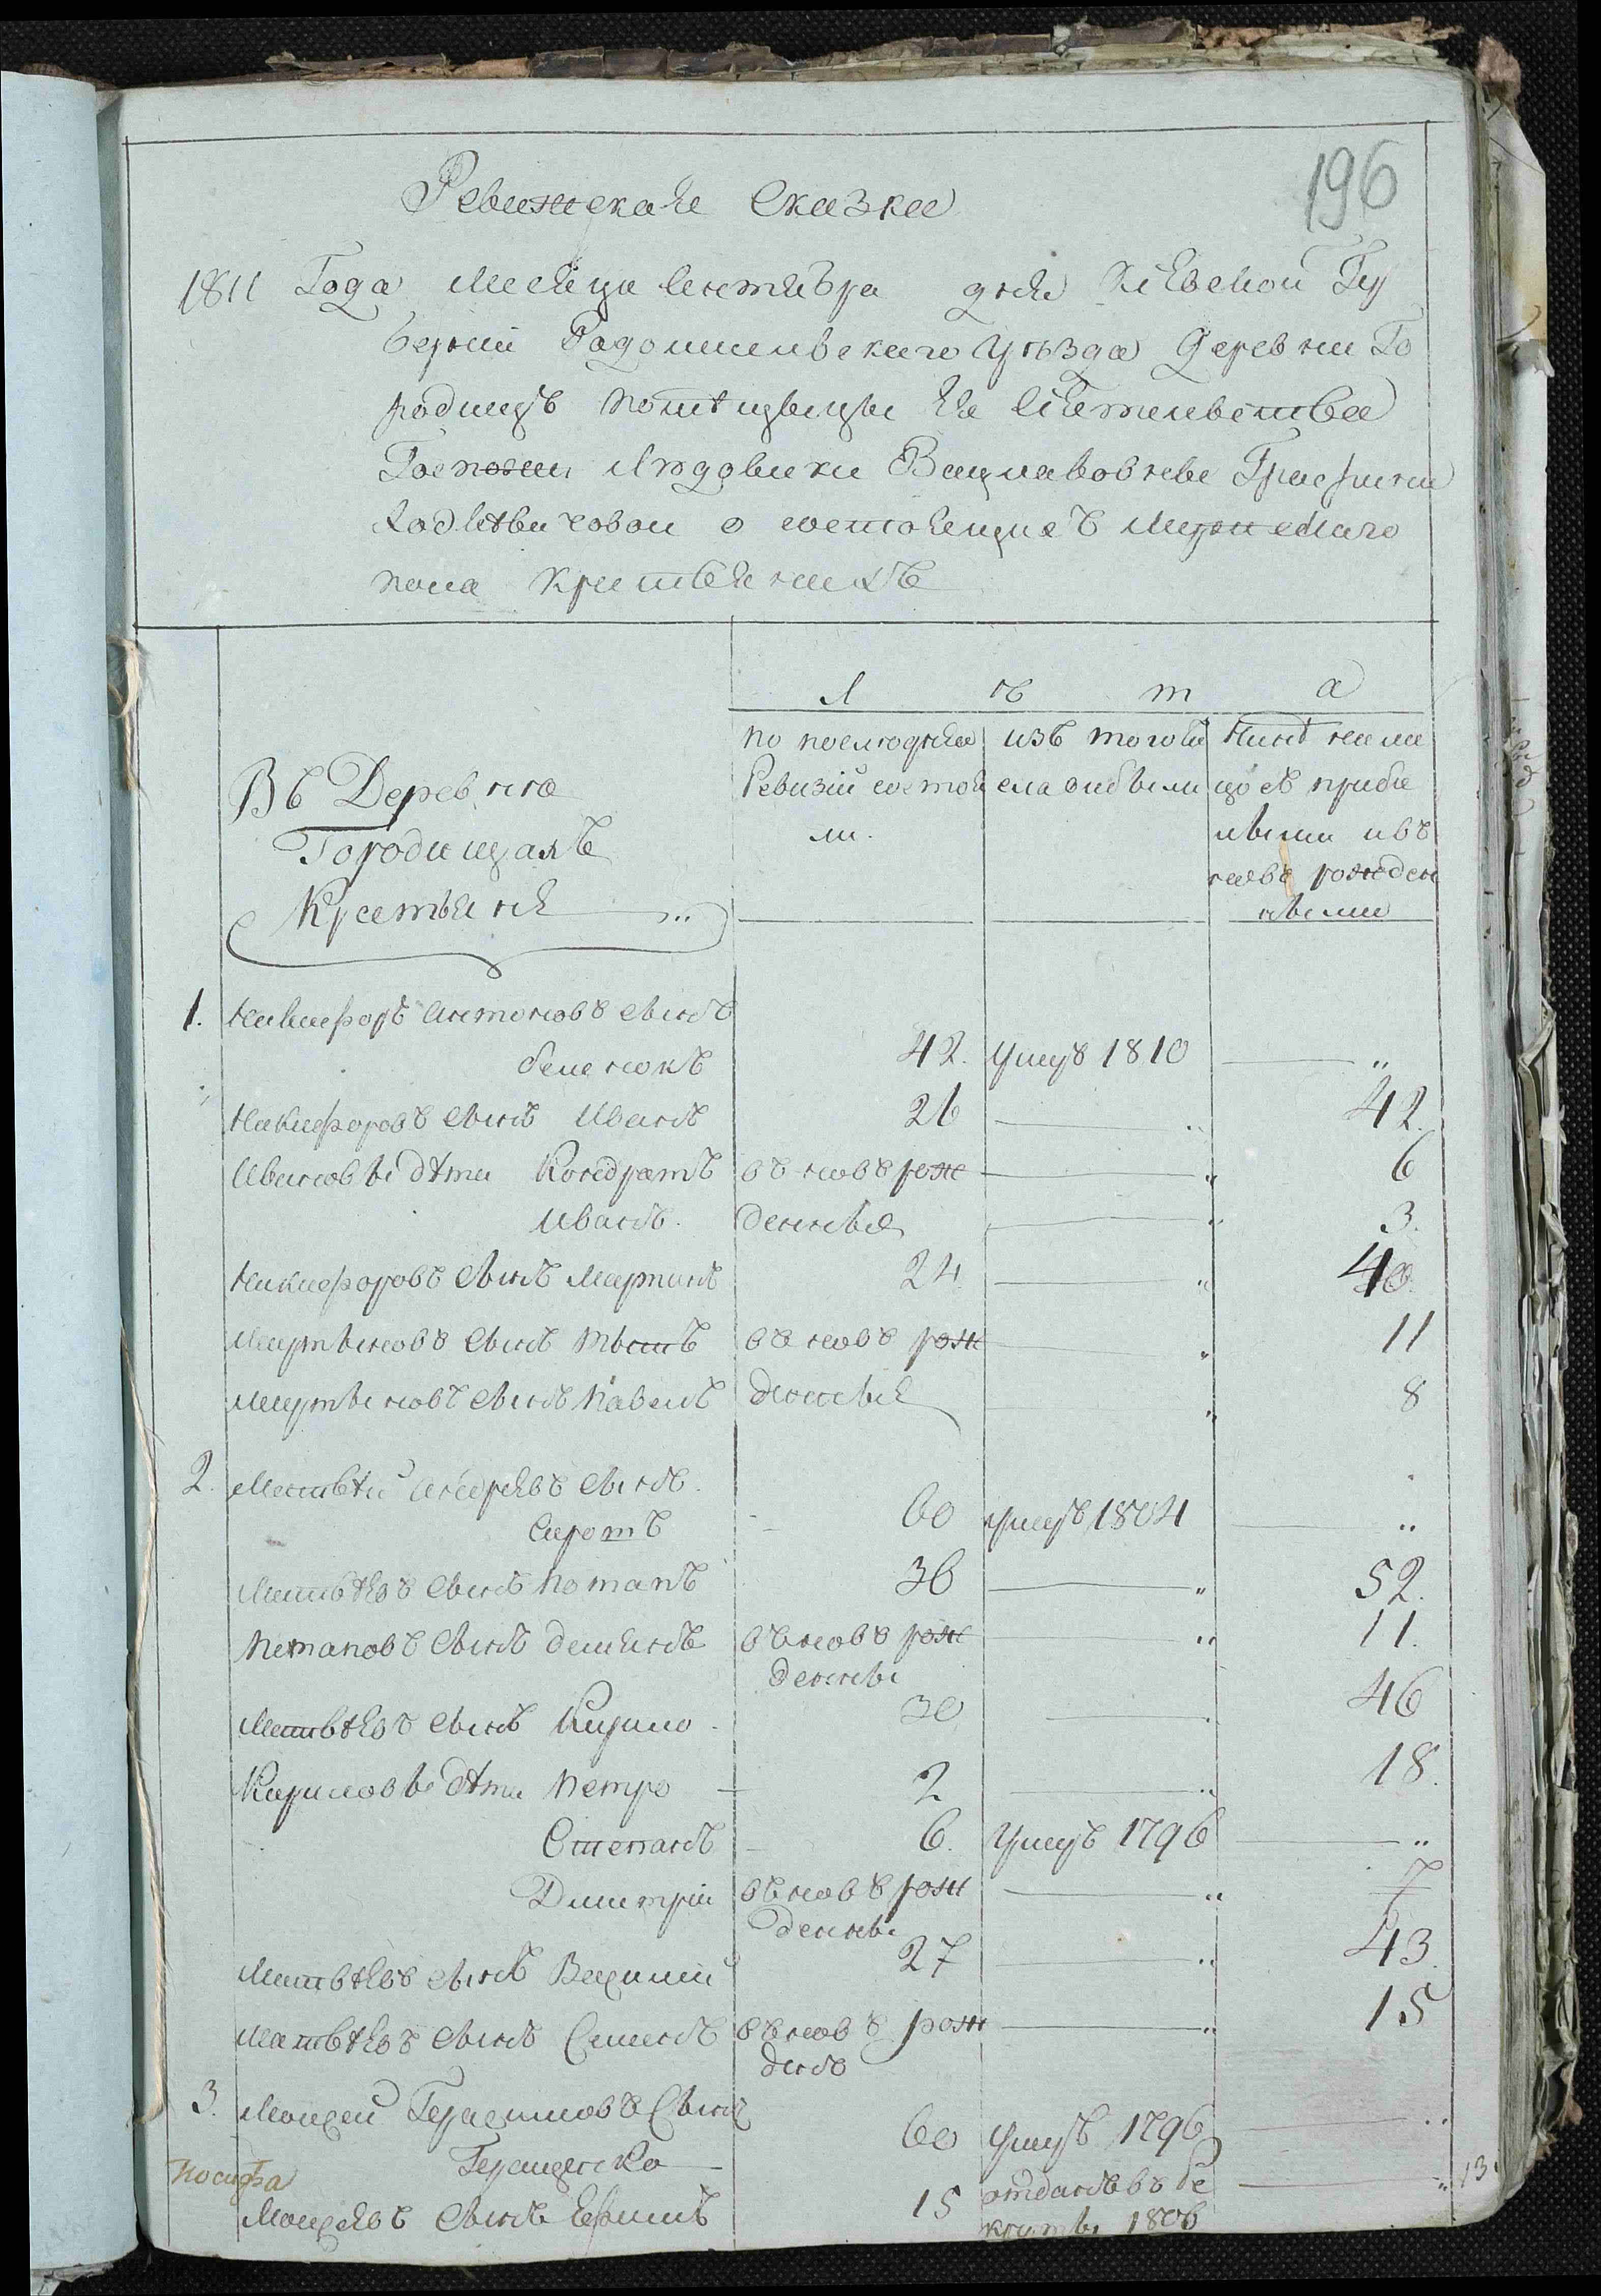 196
Ревижская Сказка
1811 Года месяца Октября дня Киевской Гу
бернии Радомишльского Уѣзда Деревни Го
родищъ помѣщыцы Ея Сіятельства
Госпожи Людовики Вацлавовне Графини
о состоящихъ мужеского
пола крестьянехъ
Л ѣ т а
Въ Деревне
Городищахъ
Крестьяне
по последнеи
Ревизіи состоя
ли.
изъ того чи
сла выбыли
Нинѣ на ли
цо съ прибы
лыми и въ
новъ рожден
ными
1. Никифоръ Антоновъ сынъ
42. умеръ 1810 "
Никифоровъ сынъ Иванъ 26 " 42.
Ивановы дѣти Кондратъ въ новъ рож " 6
Иванъ. денныя " 3.
Никифоровъ сынъ Мартинъ 24 " 40.
Мартыновъ сынъ въ новъ рож " 11
Мартыновъ сынъ Павелъ денные " 8
2. Матвѣй Андреевъ сынъ.
Сиротъ 60 умеръ 1804 "
Матвѣевъ сынъ Потапъ 36 " 52.
Потаповъ сынъ Демянъ въ новъ рож " 11.
денны
Матвѣевъ сынъ Кирило 30 46
Кириловы дѣти Петро 2 " 18.
Степанъ 6. умеръ 1796 "
Дмитріи въ новъ рож " 7
денны
Матвѣевъ сынъ Василий 27 " 43.
Матвѣевъ сынъ Семенъ въ новъ рож " 15
денъ
3. Моисей Герасимовъ Сынъ
Геращенко 60 умеръ 1796 "
Иосифа
Моисеевъ сынъ Ефимъ 15 отданъ въ ре " 13.
круты 1806